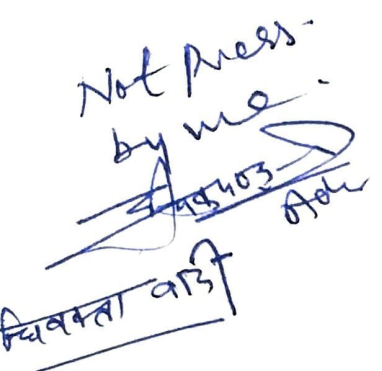 Not Press.
by me.
Adv
धिवक्ता वादी